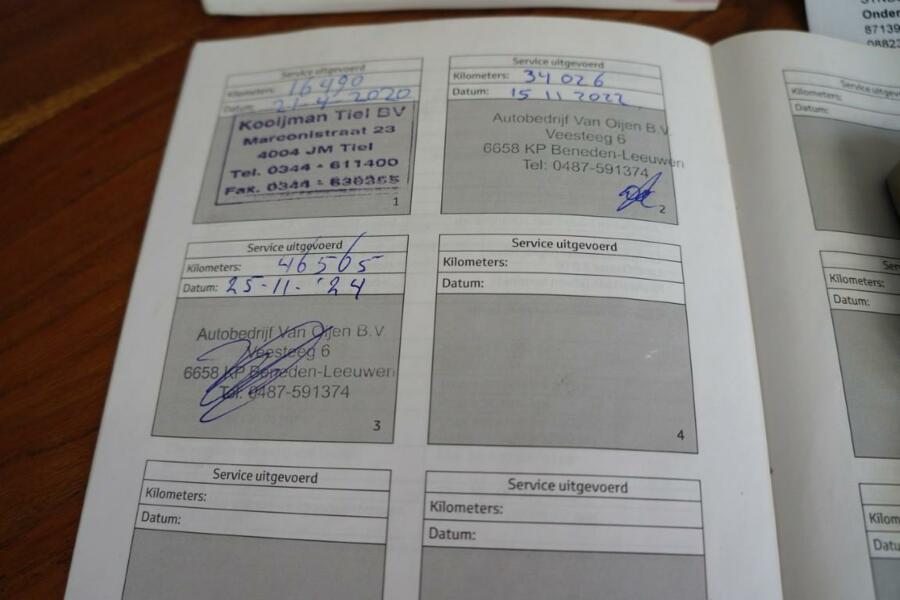 Service uitgevoerd
Kilometers: 16490
Datum: 21-4-2020
Kooijman Tiel BV
Marconistraat 23
4004 JM Tiel
Tel. 0344 - 611400
Fax. 0344 - 630355
1
Service uitgevoerd
Kilometers: 34026
Datum: 15 11 2022
Autobedrijf Van Oijen B.V.
Veesteeg 6
6658 KP Beneden-Leeuwen
Tel: 0487-591374
2
Service uitgevoerd
Kilometers: 46565
Datum: 25-11-'24
Autobedrijf Van Oijen B.V.
Veesteeg 6
6658 KP Beneden-Leeuwen
Tel: 0487-591374
3
Service uitgevoerd
Kilometers:
Datum:
4
Service uitgevoerd
Kilometers:
Datum:
Service uitgevoerd
Kilometers:
Datum:
Kilometers:
Datum:
Kilometers:
Datum: